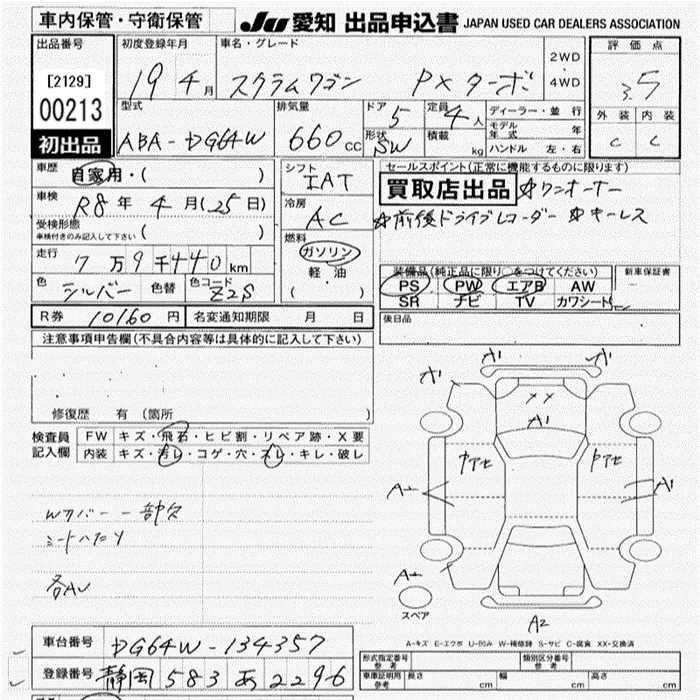 車内保管・守衛保管
JU 愛知 出品申込書 JAPAN USED CAR DEALERS ASSOCIATION
出品番号
[2129]
00213
初出品
初度登録年月
19 4月
車名・グレード
スクラムワゴン PXターボ
2WD・4WD
評価点
3.5
外装 内装
C C
型式
ABA-DG64W
排気量
660cc
ドア
5
形状
SW
定員
4人
積載 kg
ディーラー・並行
モデル年式 年
ハンドル 左・右
車歴
自家用・( )
車検
R8年 4月(25日)
受検形態
車検付きのみ記入して下さい ( )
走行
7万9千440km
色
シルバー
色替
色コード
Z2S
シフト
IAT
冷房
AC
燃料
ガソリン
軽油
( )
セールスポイント(正常に機能するものに限ります)
買取店出品 ☆ワンオーナー
☆前後ドライブレコーダー ☆キーレス
装備品(純正品に限り○をつけてください)
新車保証書
PS PW エアB AW
SR ナビ TV カワシート
R券 10160円
名変通知期限 月 日
後日品
注意事項申告欄(不具合内容等は具体的に記入して下さい)
修復歴 有(箇所 )
検査員記入欄
FW キズ・飛石・ヒビ割・リペア跡・X要
内装 キズ・汚レ・コゲ・穴・スレ・キレ・破レ
Wカバー一部欠
シートヘタリ
各AU
A1
A1
A1
××
A1
中アセ
中アセ
A2
A1
A2
スペア
A2
A-キズ E-エクボ U-凹み W-補修跡 S-サビ C-腐食 XX-交換済
車台番号 DG64W-134357
登録番号 静岡 583 あ 2296
形式指定番号 参考
類別区分番号 参考
車庫証明用 参考
長さ cm 幅 cm 高さ cm